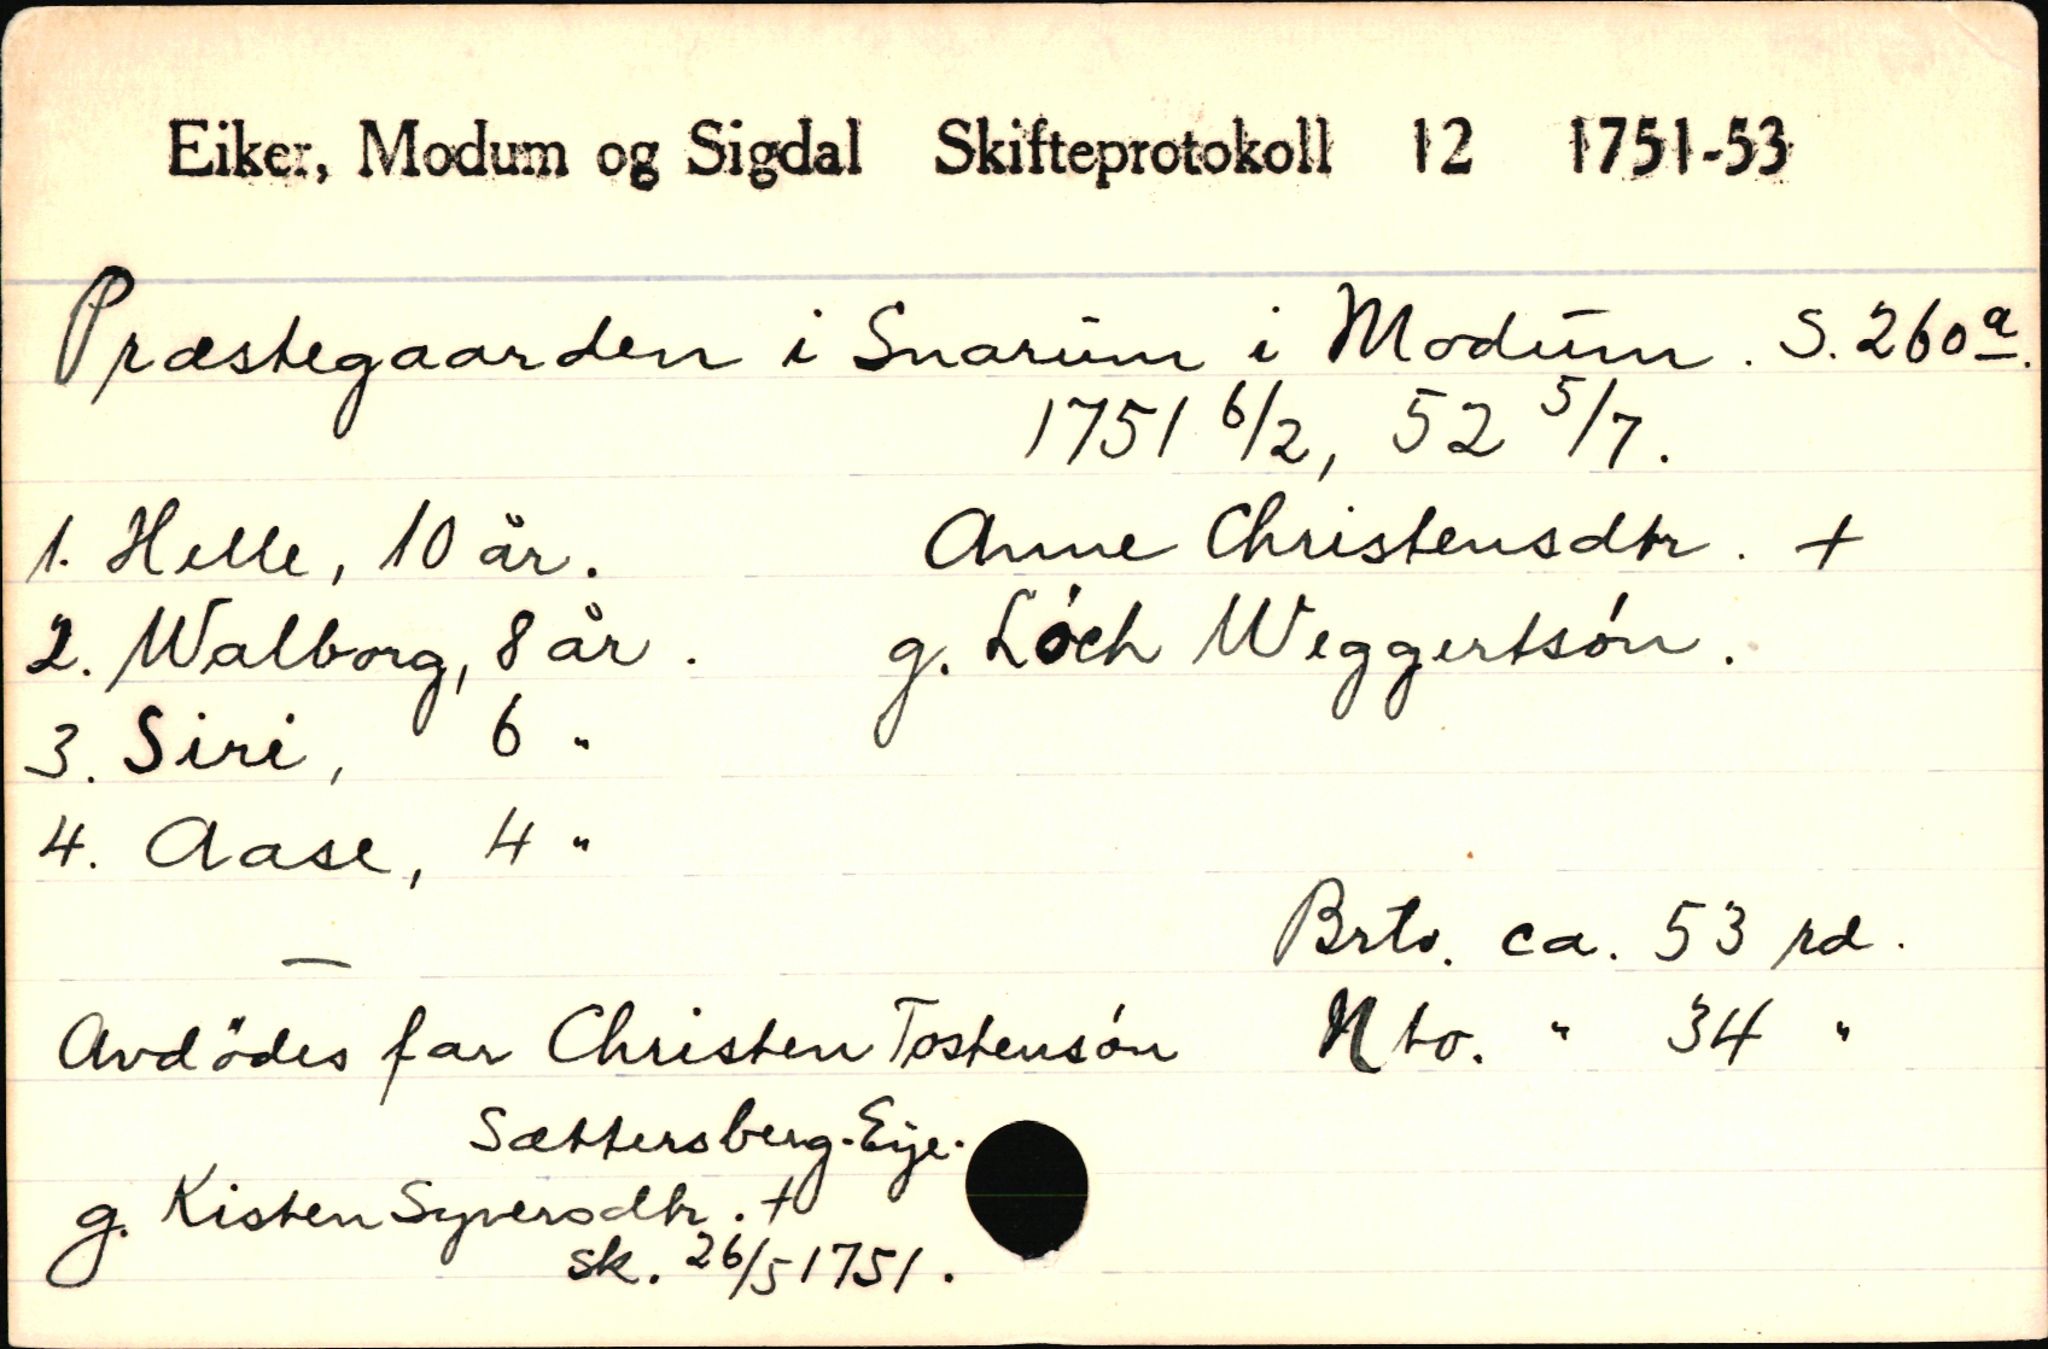 Eiker, Modum og Sigdal Skifteprotokoll 12 1751-53
Præstegaarden i Snarŭm i Modŭm. S. 260a.
1751 6/2, 52 5/7.
1. Helle, 10 år. Anne Christensdtr. +
2. Walborg, 8 år. g. Lóch Weggertsón.
3. Siri, 6 "
4. Aase, 4 "
Brto. ca. 53 rd.
Avdödes far Christen Tostensón Nto. " 34 "
Sættersberg-Eje.
g. Kisten Syversdtr. +
sk. 26/5 1751.